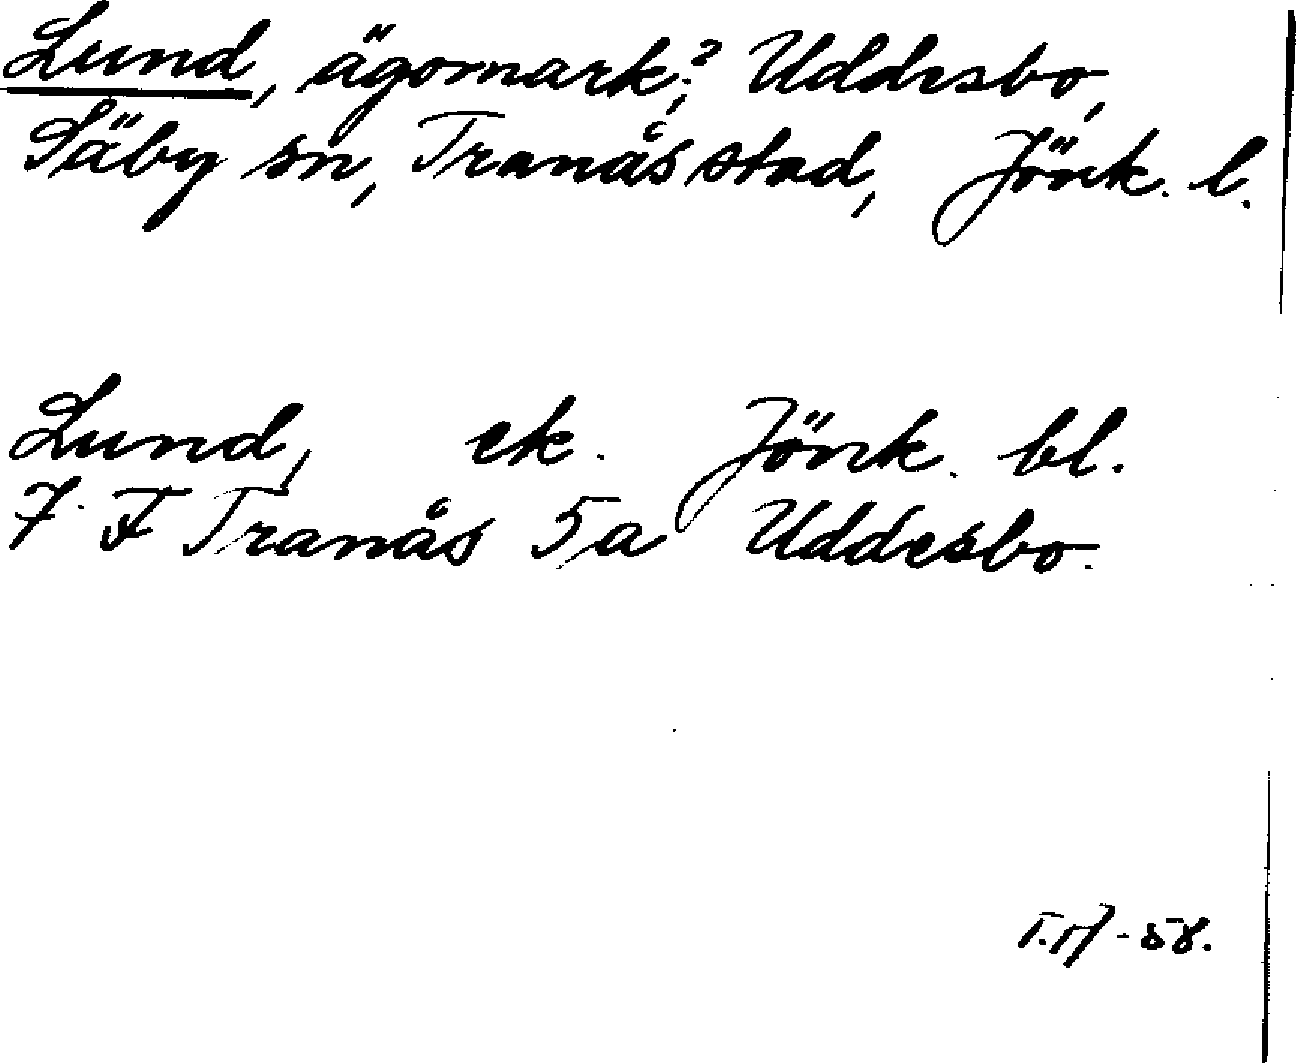 Lund, ägomark,? Uddesbo,
Säby sn, Tranås stad, Jönk. l.
Lund, ek. Jönk. bl.
7 F Tranås 5a Uddesbo.
-58.